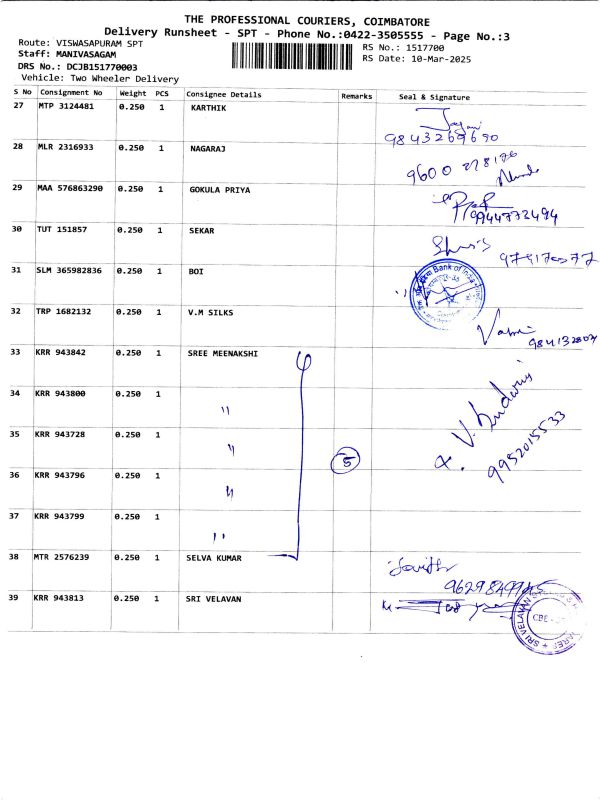 THE PROFESSIONAL COURIERS, COIMBATORE
Delivery Runsheet - SPT - Phone No.:0422-3505555 - Page No.:3
Route: VISWASAPURAM SPT
RS No.: 1517700
Staff: MANIVASAGAM
RS Date: 10-Mar-2025
DRS No.: DCJB151770003
Vehicle: Two Wheeler Delivery
S No Consignment No Weight PCS Consignee Details Remarks Seal & Signature
27 MTP 3124481 0.250 1 KARTHIK
9843269690
28 MLR 2316933 0.250 1 NAGARAJ
9600
29 MAA 576863290 0.250 1 GOKULA PRIYA
9944772494
30 TUT 151857 0.250 1 SEKAR
31 SLM 365982836 0.250 1 BOI
Bank of India
32 TRP 1682132 0.250 1 V.M SILKS
33 KRR 943842 0.250 1 SREE MEENAKSHI
34 KRR 943800 0.250 1 "
35 KRR 943728 0.250 1 "
5
9952015533
36 KRR 943796 0.250 1 "
37 KRR 943799 0.250 1 "
38 MTR 2576239 0.250 1 SELVA KUMAR
39 KRR 943813 0.250 1 SRI VELAVAN
SRI VELAVAN